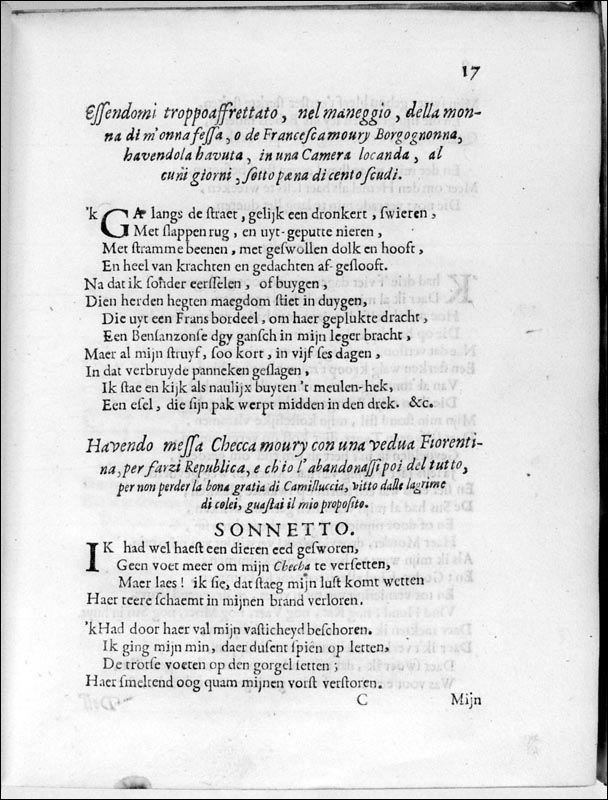 17
Essendomi troppoaffrettato, nel maneggio, della mon-
na di m'onna fessa, o de Francescamoury Borgognonna,
havendola havuta, in una Camera locanda, al
cuni giorni, sotto pæna di cento scudi.
'k GA langs de straet, gelijk een dronkert, swieren,
Met slappen rug, en uyt-geputte nieren,
Met stramme beenen, met geswollen dolk en hooft,
En heel van krachten en gedachten af-geslooft.
Na dat ik sonder eerselen, of buygen,
Dien herden hegten maegdom stiet in duygen,
Die uyt een Frans bordeel, om haer geplukte dracht,
Een Bensanzonse dgy gansch in mijn leger bracht,
Maer al mijn struyf, soo kort, in vijf ses dagen,
In dat verbruyde panneken geslagen,
Ik stae en kijk als naulijx buyten 't meulen-hek,
Een esel, die sijn pak werpt midden in den drek. &c.
Havendo messa Checca moury con una vedua Fiorenti-
na, per farzi Republica, e ch io l'abandonassi poi del tutto,
per non perder la bona gratia di Camilluccia, vitto dalle lagrime
di colei, guastai il mio proposito.
SONNETTO.
IK had wel haest een dieren eed gesworen,
Geen voet meer om mijn Checha te versetten,
Maer laes! ik sie, dat staeg mijn lust komt wetten
Haer teere schaemt in mijnen brand verloren.
'kHad door haer val mijn vasticheyd beschoren.
Ik ging mijn min, daer dusent spiën op letten,
De trotse voeten op den gorgel setten;
Haer smeltend oog quam mijnen vorst verstoren.
C Mijn